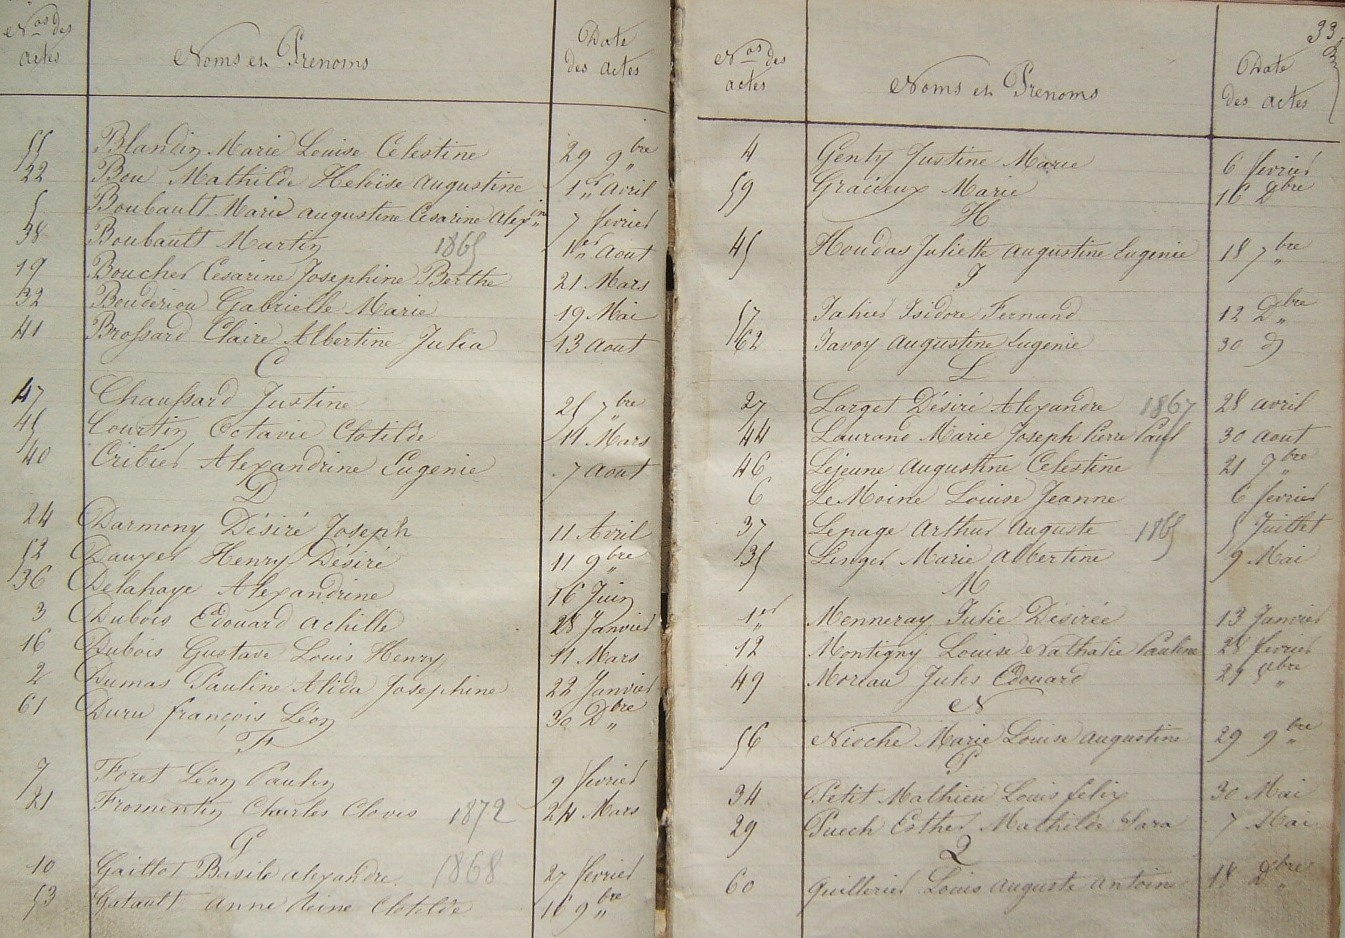 Nos des actes Noms et Prenoms Date des actes
55 Blandin Marie Louise Celestine 29 9bre
22 Bou Mathilde Heloïse augustine 1er avril
5 Boubault Marie augustine Césarine Alexine 7 fevrier
38 Boubault Martin 1865 1er Aout
19 Boucher Cesarine Josephine Berthe 21 Mars
32 Bouderiou Gabrielle Marie 19 Mai
41 Brossard Claire Albertine Julia 13 aout
C
47 Chaussard Justine 25 7bre
Courtin Octavie Clotilde 11 Mars
40 Cribier Alexandrine Eugenie 7 aout
D
24 Darmony Désiré Joseph 11 Avril
52 Dauxer Henry Désiré 11 9bre
36 Delahaye Alexandrine 16 Juin
3 Dubois Edouard achille 28 Janvier
16 Dubois Gustave Louis Henry 11 Mars
2 Dumas Pauline Alida Josephine 22 Janvier
61 Duru françois Léon 30 Dbre
F
7 Foret Léon Paulin 9 fevrier
21 Fromentin Charles Clovis 1872 24 Mars
G
10 Gaillot Basile alexandre 1868 27 fevrier
53 Gatault anne Reine Clotilde 16 9bre
33
Nos des actes Noms et Prenoms Date des actes
4 Genty Justine Marie 6 fevrier
59 Gracieux Marie 16 Dbre
H
45 Houdas Juliette augustine Eugenie 18 7bre
J
57 Jahier Isidore Fernand 12 Dbre
62 Javoy augustine Eugenie 30 d
L
27 Larget Désiré Alexandre 1867 28 avril
44 Laurand Marie Joseph Pierre Paul 30 aout
46 Lejeune augustine Celestine 21 7bre
6 Le Moine Louise Jeanne 6 fevrier
37 Lepage arthur auguste 1865 5 Juillet
35 Linger Marie albertine 9 Mai
M
1er Menneray Julie Désirée 13 Janvier
12 Montigny Louise Nathalie Pauline 28 fevrier
49 Moreau Jules Edouard
N
56 Nioche Marie Louise augustine 29 9bre
P
34 Petit Mathieu Louis félix 30 Mai
29 Puech Esther Mathilde Sara 7 Mai
Q
60 Quillerier Louis auguste antoine 18 Dbre